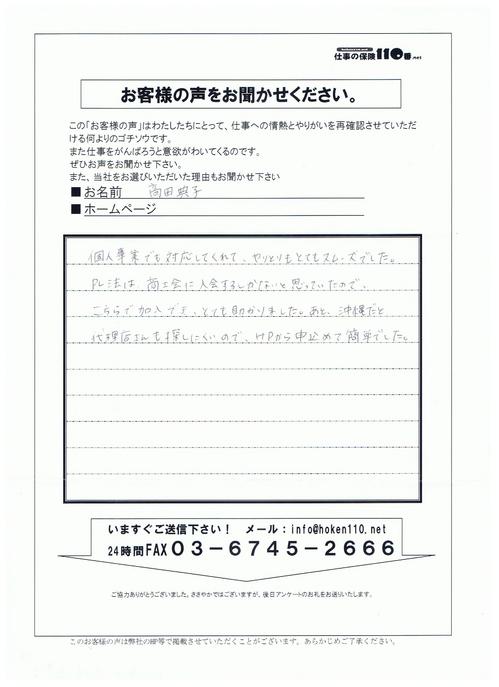 仕事の保険110番.net
お客様の声をお聞かせください。
この「お客様の声」はわたしたちにとって、仕事への情熱とやりがいを再確認させていただ
ける何よりのゴチソウです。
また仕事をがんばろうと意欲がわいてくるのです。
ぜひお声をお聞かせ下さい。
また、当社をお選びいただいた理由もお聞かせ下さい
■お名前 高田 子
■ホームページ
個人事業でも対応してくれて、やりとりもとてもスムーズでした。
PL法は、商工会に入会するしかないと思っていたので、
こちらで加入でき、とても助かりました。あと、沖縄だと
代理店さんも探しにくいので、HPから申込めて簡単でした。
いますぐご送信下さい！ メール：info@hoken110.net
24時間FAX03-6745-2666
ご協力ありがとうございました。ささやかではございますが、後日アンケートのお礼をお送りいたします。
このお客様の声は弊社のHP等で掲載させていただくことがございます。あらかじめご了承ください。